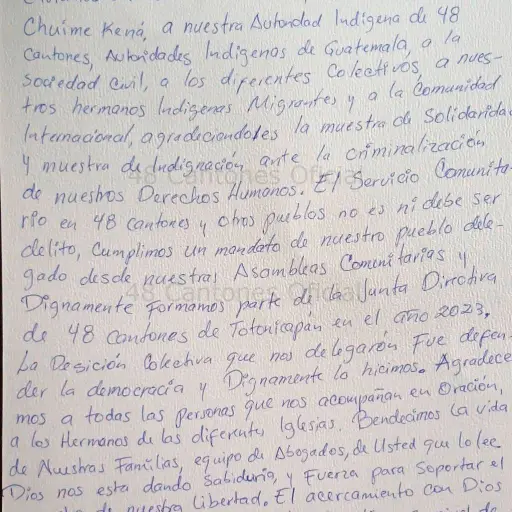 Chuime Kená, a nuestra Autoridad Indígena de 48
Cantones, Autoridades Indígenas de Guatemala, a la
sociedad Civil, a los diferentes Colectivos, a nues-
tros hermanos Indígenas Migrantes y a la Comunidad
Internacional, agradeciendoles la muestra de Solidarida
y muestra de Indignación ante la criminalización
de nuestros Derechos Humanos. El Servicio Comunita-
rio en 48 cantones y otros pueblos no es ni debe ser
delito, Cumplimos un mandato de nuestro pueblo dele-
gado desde nuestras Asambleas Comunitarias y
Dignamente Formamos parte de la Junta Directiva
de 48 cantones de Totonicapán en el año 2023.
La Desición Colectiva que nos delegarón Fue defen-
der la democracia y Dignamente lo hicimos. Agradece
mos a todas las personas que nos acompañan en Oración,
a los Hermanos de las diferentes Iglesias. Bendecimos la vida
de Nuestras Familias, equipo de Abogados, de Usted que lo lee
Dios nos esta dando Sabiduria, y Fuerza para soportar el
de nuestra libertad. El acercamiento con Dios
48 Cantones Oficial
48 Cantones Oficial